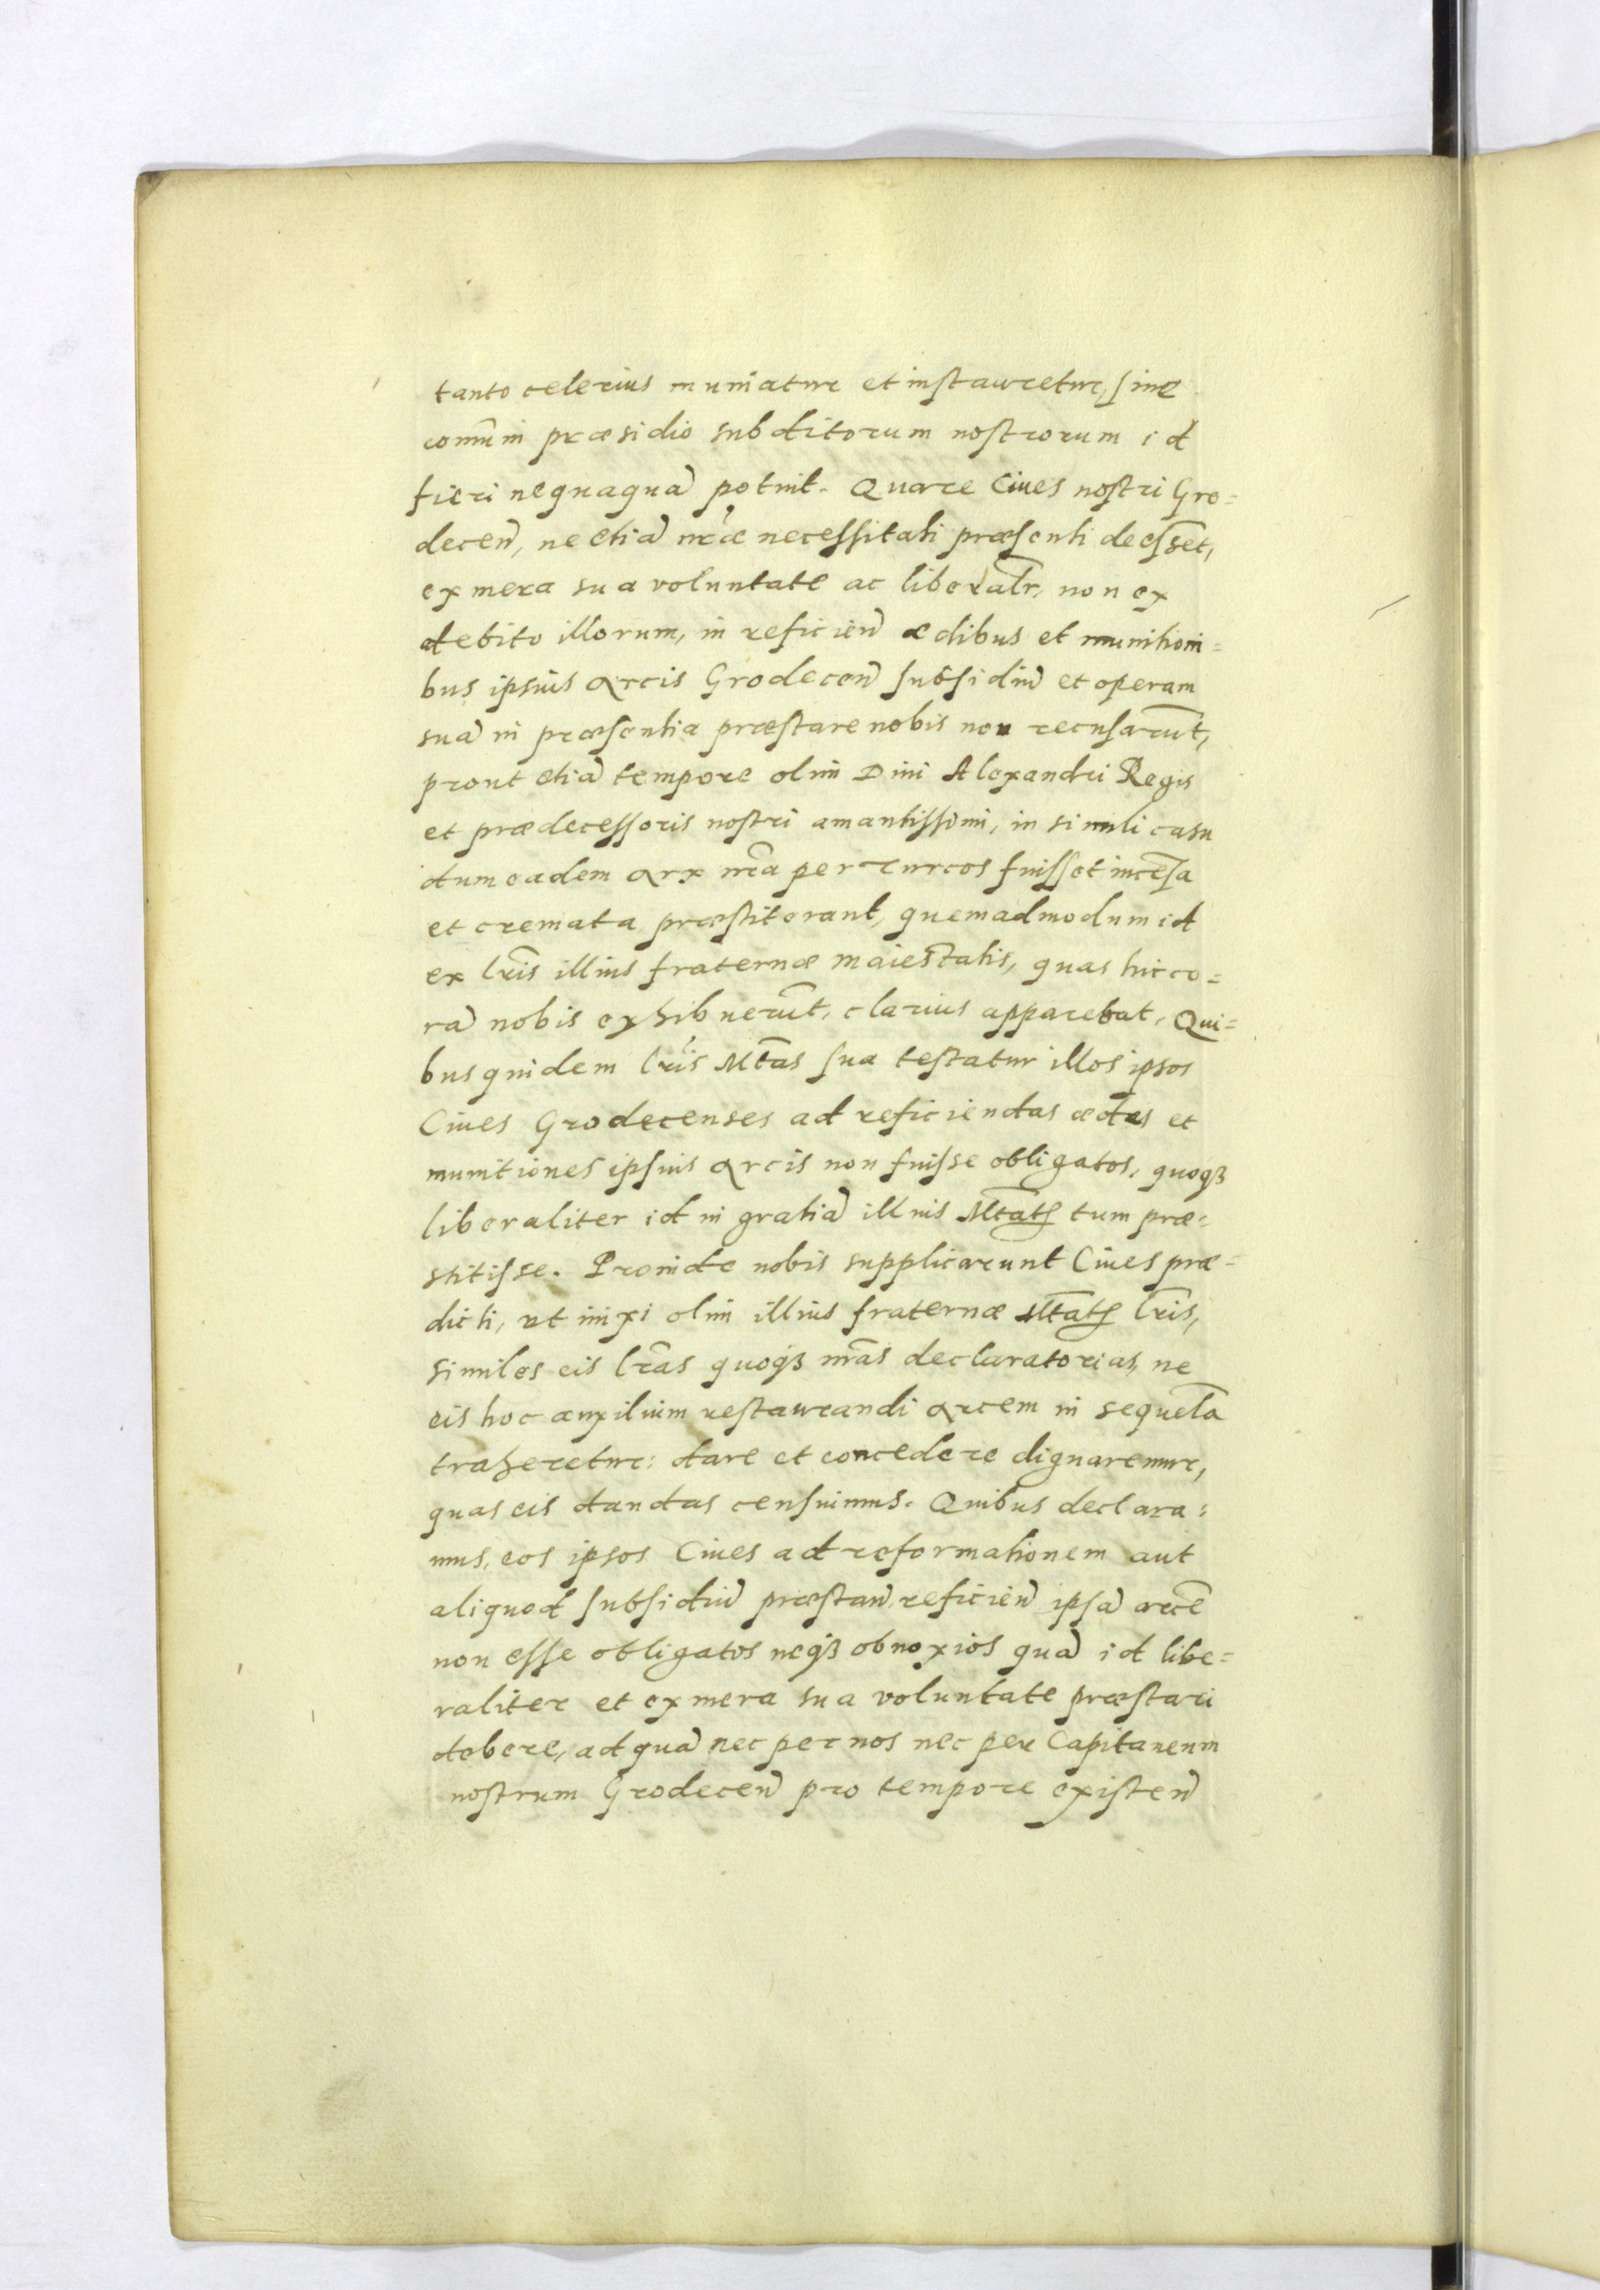 tanto celerius muniatur et instauretur, sine
comuni præsidio subditorum nostrorum id
fieri nequaquã potuit. Quare Ciues nostri Gro=
decen̄, ne etiã nr̃æ necessitati præsenti deesset̄,
ex mera sua voluntate ac liberalr̃, non ex
debito illorum, in reficien̄ ædibus et munitioni=
bus ipsius arcis Grodecen̄ subsidiū et operam
suã in præsentia præstare nobis non recusarūt,
prout etiã tempore olim Diui Alexandri Regis
et prædecessoris nostri amantissimi, in simili casu
dum eadem arx nr̃a per Turcos fuisset incēsa
et cremata præstiterant, quemadmodum id
ex lr̃is illius fraternæ maiestatis, quas hic co=
rã nobis exhibuerūt, clarius apparebat, Qui=
bus quidem lr̃is Mt̃as sua testatur illos ipsos
Ciues Grodecenses ad reficiendas ædes et
munitiones ipsius arcis non fuisse obligatos, quoqȝ
liberaliter id in gratiã illius Mt̃atꝭ tum præ=
stitisse. Proinde nobis supplicarunt Ciues præ=
dicti, ut inixi olim illius fraternæ Mt̃atꝭ lr̃is,
similes eis lr̃as quoqȝ nr̃as declaratorias, ne
eis hoc auxilium restaurandi arcem in sequelã
traheretur: dare et concedere dignaremur,
quas eis dandas censuimus. Quibus declara=
mus, eos ipsos Ciues ad reformationem aut
aliquod subsidiū præstan̄ reficien̄ ipsã arcē
non esse obligatos neqȝ obnoxios quã id libe=
raliter et ex mera sua voluntate præstari
debere, ad quã nec per nos nec per Capitaneum
nostrum Grodecen̄ pro tempore existen̄